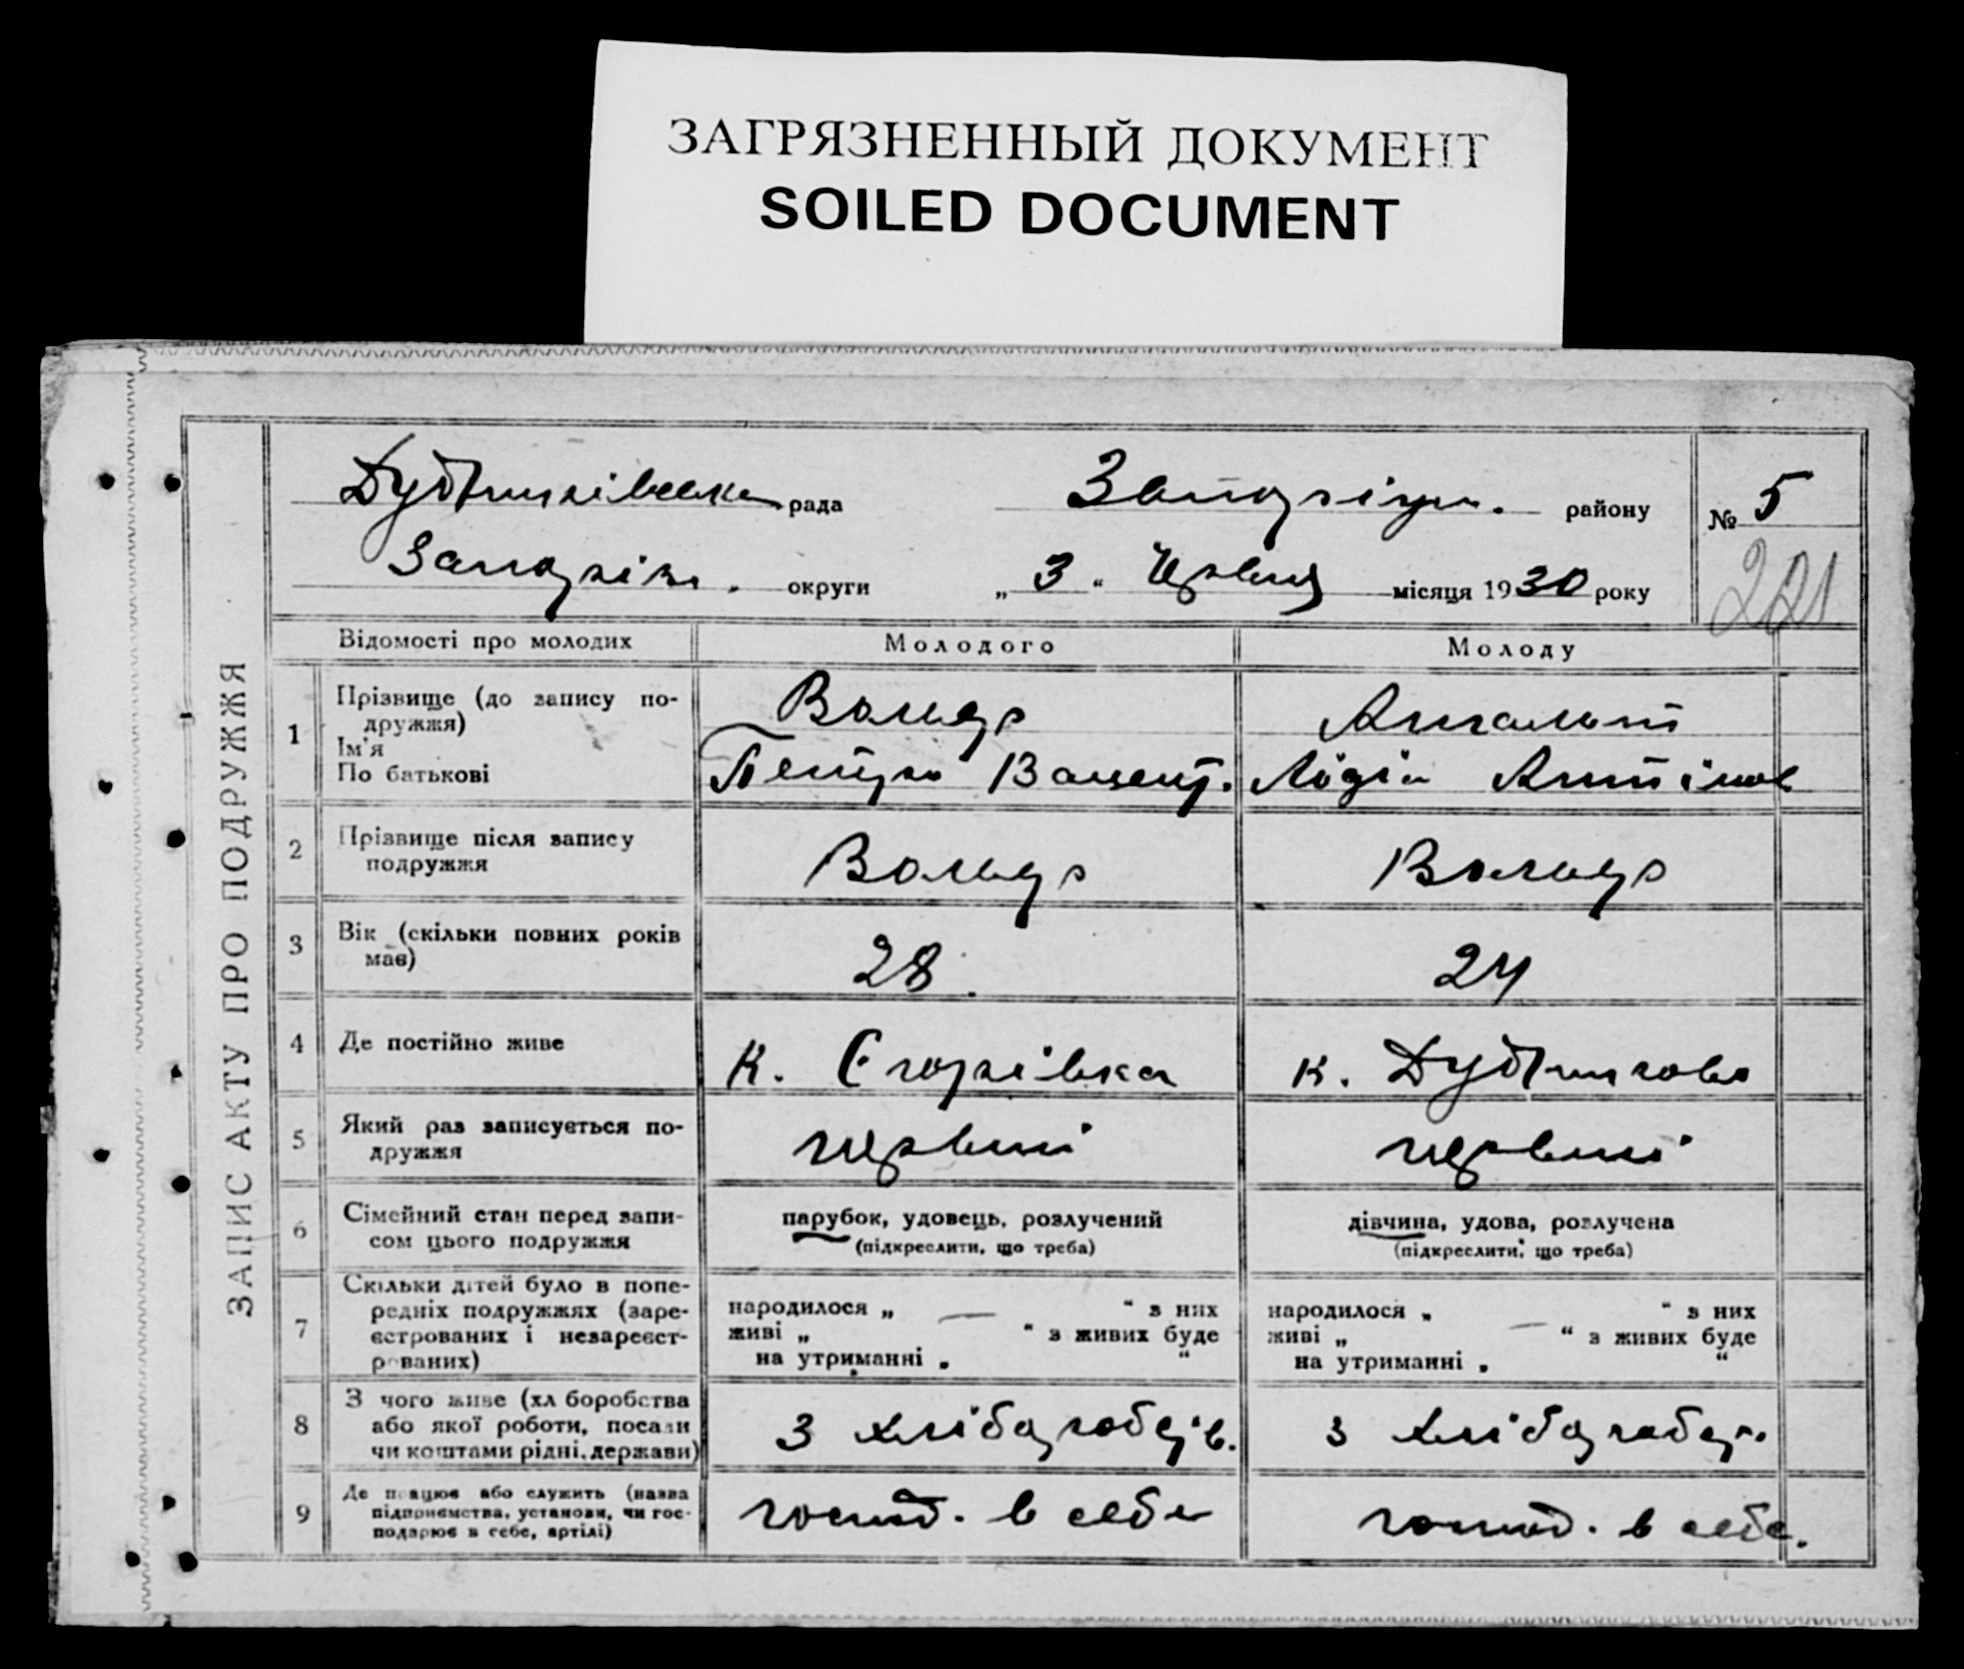 ЗАГРЯЗНЕННЫЙ ДОКУМЕНТ
SOILED DOCUMENT
ЗАПИС АКТУ ПРО ПОДРУЖЖЯ
рада
району
№ 5
округи
„ 3 “ Червня місяця 1930 року
221
Відомості про молодих
Молодого
Молоду
1
Прізвище (до запису по-
дружжя)
Ім'я
По батькові
Петро
Лідія
2
Прізвище після запису
подружжя
3
Вік (скільки повних років
має)
28
24
4
Де постійно живе
к. Єгорівка
к.
5
Який раз записується по-
дружжя
перший
перший
6
Сімейний стан перед запи-
сом цього подружжя
парубок, удовець, розлучений
(підкреслити, що треба)
дівчина, удова, розлучена
(підкреслити, що треба)
7
Скільки дітей було в попе-
редніх подружжях (заре-
єстрованих і незареєст-
рованих)
народилося „ — “ з них
живі „ “ з живих буде
на утриманні „ “
народилося „ — “ з них
живі „ “ з живих буде
на утриманні „ “
8
З чого живе (хлiборобства
або якої роботи, посади
чи коштами рідні, держави)
З хлібороб.
З хлібороб.
9
Де працює або служить (назва
підприємства, установи, чи гос-
подарює в себе, артілі)
госпód. в себе
госпód. в себе.